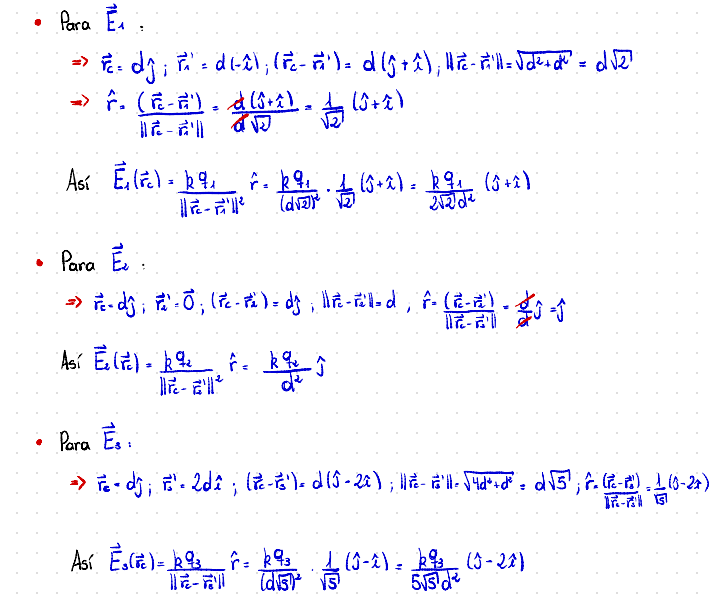 • Para \vec{E}_1 :
⇒ \vec{r}_c = dĵ ; \vec{r}_1' = d(-î) ; (\vec{r}_c - \vec{r}_1') = d(ĵ+î) ; ||\vec{r}_c - \vec{r}_1'|| = \sqrt{d²+d²} = d\sqrt{2}
⇒ \hat{r} = \frac{(\vec{r}_c - \vec{r}_1')}{||\vec{r}_c - \vec{r}_1'||} = \frac{d(ĵ+î)}{d\sqrt{2}} = \frac{1}{\sqrt{2}} (ĵ+î)
Así \vec{E}_1(\vec{r}_c) = \frac{kq_1}{||\vec{r}_c - \vec{r}_1'||²} \hat{r} = \frac{kq_1}{(d\sqrt{2})²} · \frac{1}{\sqrt{2}} (ĵ+î) = \frac{kq_1}{2\sqrt{2}d²} (ĵ+î)
• Para \vec{E}_2 :
⇒ \vec{r}_c = dĵ ; \vec{r}_2' = \vec{0} ; (\vec{r}_c - \vec{r}_2') = dĵ ; ||\vec{r}_c - \vec{r}_2'|| = d , \hat{r} = \frac{(\vec{r}_c - \vec{r}_2')}{||\vec{r}_c - \vec{r}_2'||} = \frac{d}{d} ĵ = ĵ
Así \vec{E}_2(\vec{r}_c) = \frac{kq_2}{||\vec{r}_c - \vec{r}_2'||²} \hat{r} = \frac{kq_2}{d²} ĵ
• Para \vec{E}_3 :
⇒ \vec{r}_c = dĵ ; \vec{r}_3' = 2dî ; (\vec{r}_c - \vec{r}_3') = d(ĵ-2î) ; ||\vec{r}_c - \vec{r}_3'|| = \sqrt{4d²+d²} = d\sqrt{5} ; \hat{r} = \frac{(\vec{r}_c - \vec{r}_3')}{||\vec{r}_c - \vec{r}_3'||} = \frac{1}{\sqrt{5}} (ĵ-2î)
Así \vec{E}_3(\vec{r}_c) = \frac{kq_3}{||\vec{r}_c - \vec{r}_3'||} \hat{r} = \frac{kq_3}{(d\sqrt{5})²} · \frac{1}{\sqrt{5}} (ĵ-î) = \frac{kq_3}{5\sqrt{5}d²} (ĵ-2î)